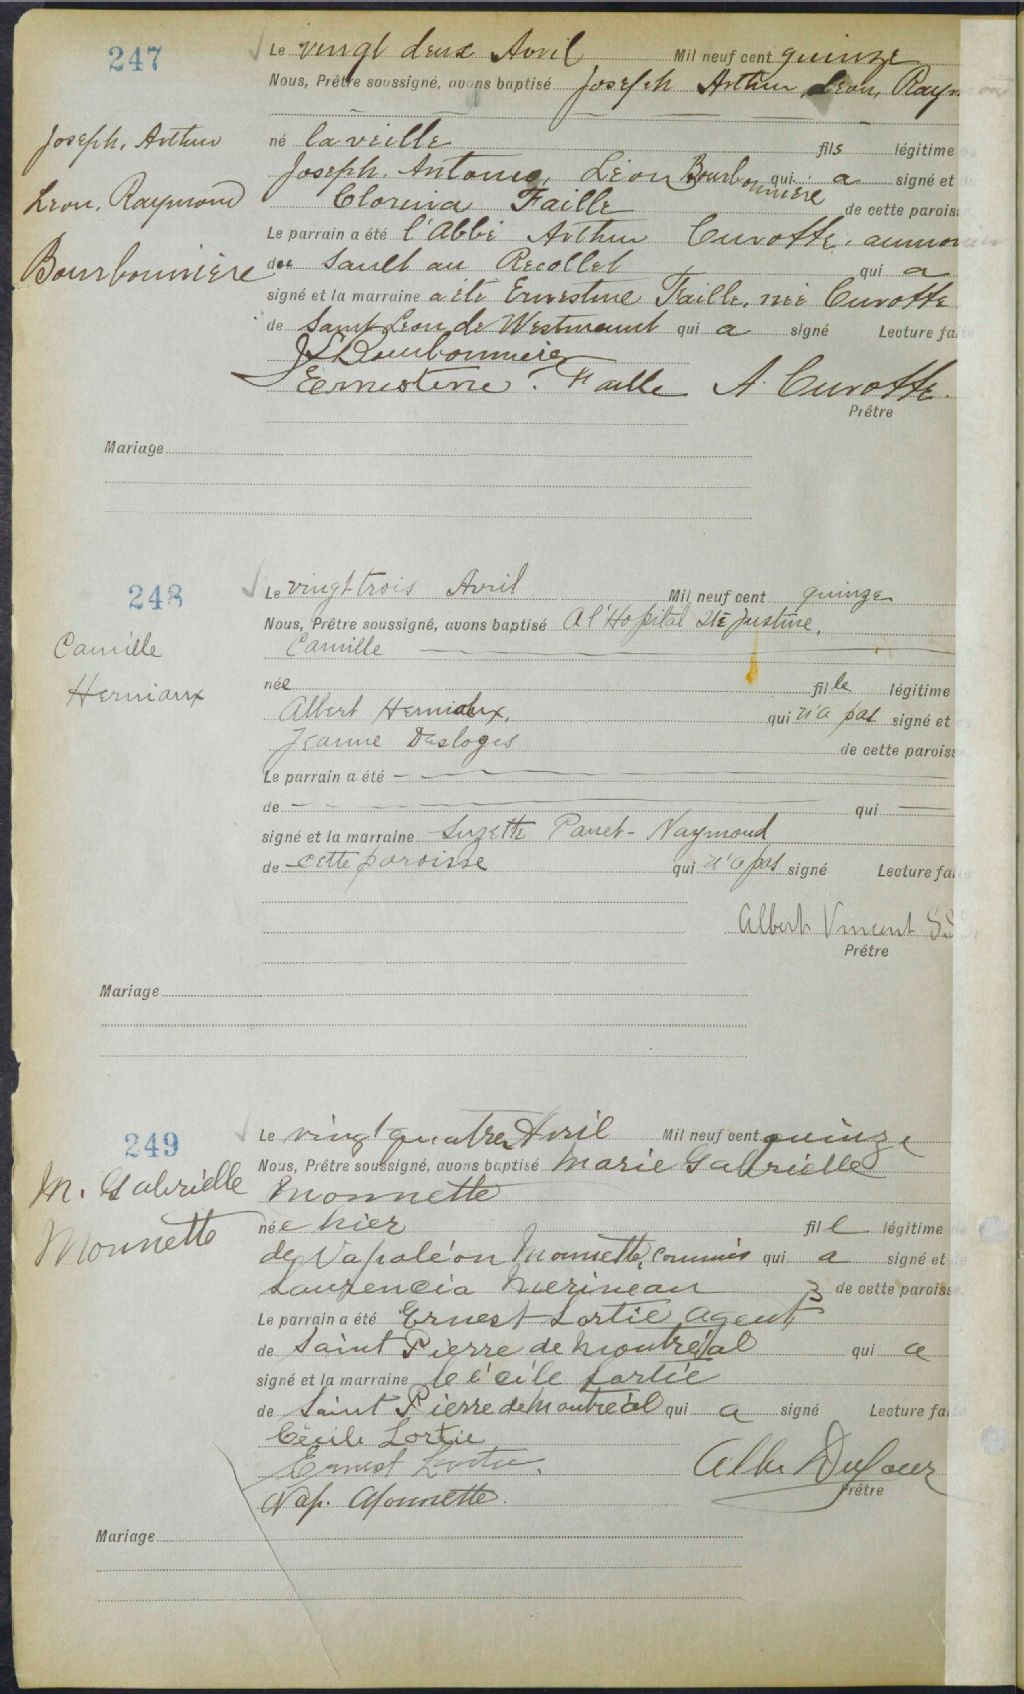 247
Le vingt deux Avril Mil neuf cent quinze
Nous, Prêtre soussigné, avons baptisé Joseph Arthur, Leon, Raym
Joseph, Arthur
né la veille fils légitime
Joseph. Antonio, Léon Bourbonnière qui a signé et
Leon. Raymond
Clorina Faille de cette parois
Le parrain a été l'Abbé Arthur Curotte, aumonier
Bourbonnière
du Sault au Recollet qui a
signé et la marraine a été Ernestine Faille, née Curotte
de Saint Leon de Westmount qui a signé Lecture faite
J L Bourbonnière
Ernestine. Faille A. Curotte.
Prêtre
Mariage
248
Le vingt trois Avril Mil neuf cent quinze
Nous, Prêtre soussigné, avons baptisé A l'Hopital Ste Justine,
Camille
Camille
Herniaux
née fille légitime
Albert Herniaux, qui n'a pas signé et
Jeanne Desloges de cette paroisse
Le parrain a été
de qui
signé et la marraine Suzette Panet-Raymond
de cette paroisse qui n'a pas signé Lecture fai
Albert Vincent S.S.
Prêtre
Mariage
249
Le vingt quatre Avril Mil neuf cent quinze
Nous, Prêtre soussigné, avons baptisé Marie Gabrielle
M. Gabrielle
Monnette
Monnette
née hier fille légitime
de Napoléon Monnette, commis qui a signé et
Laurencia Merineau de cette paroisse
Le parrain a été Ernest Lortie agent
de Saint Pierre de Montréal qui a
signé et la marraine Cécile Lortie
de Saint Pierre de Montréal qui a signé Lecture fai
Cécile Lortie
Ernest Lortie.
Nap. Monnette.
Prêtre
Mariage